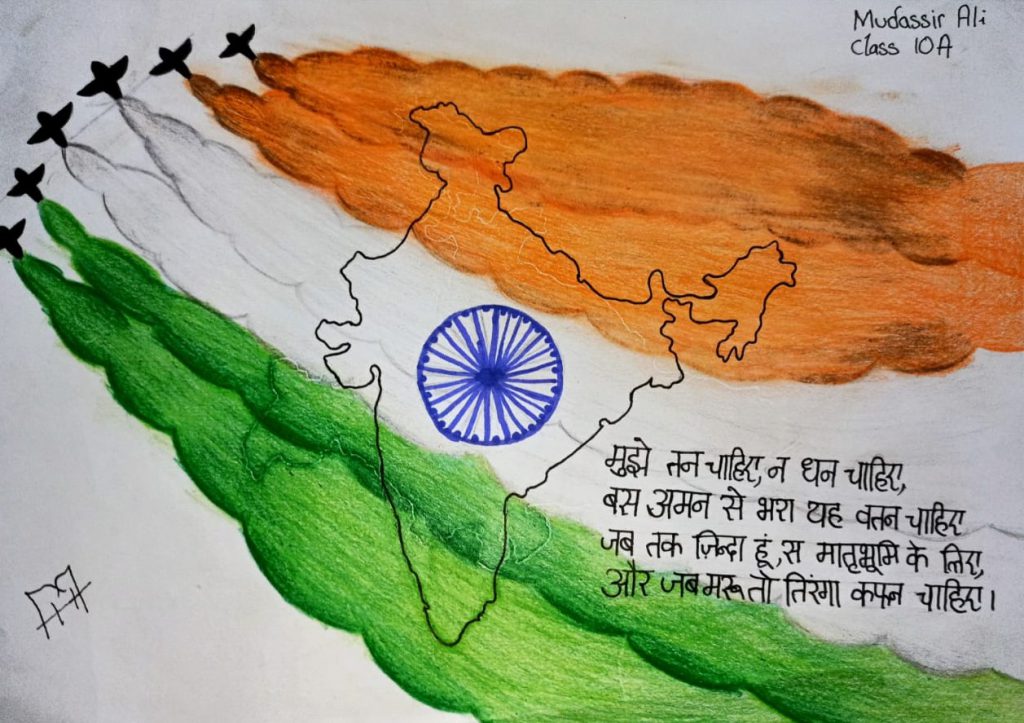 Mudassir Ali
Class 10A
मुझे तन चाहिए, न धन चाहिए,
बस अमन से भरा यह वतन चाहिए
जब तक ज़िन्दा हूं, स मातृभूमि के लिए,
और जब मरू तो तिरंगा कफन चाहिए।